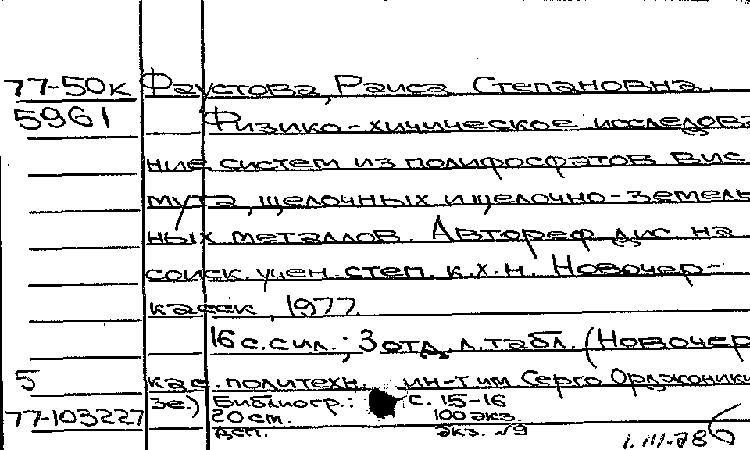 77-50к Фаустова, Раиса Степановна.
5961 Физико-химическое исследова
ние систем из полифосфатов вис
мута, щелочных и щелочно-земель
ных металлов. Автореф дис на
соиск. учен. степ. к.х.н. Новочер-
касск, 1977.
16 с. с ил.; 3 отд. л. табл. (Новочер
5 кас. политехн. ин-т им Серго Орджоники
зе.) Библиогр.: с. 15-16
77-103227 20 см. 100 экз.
деп. экз. №9
1.III-78